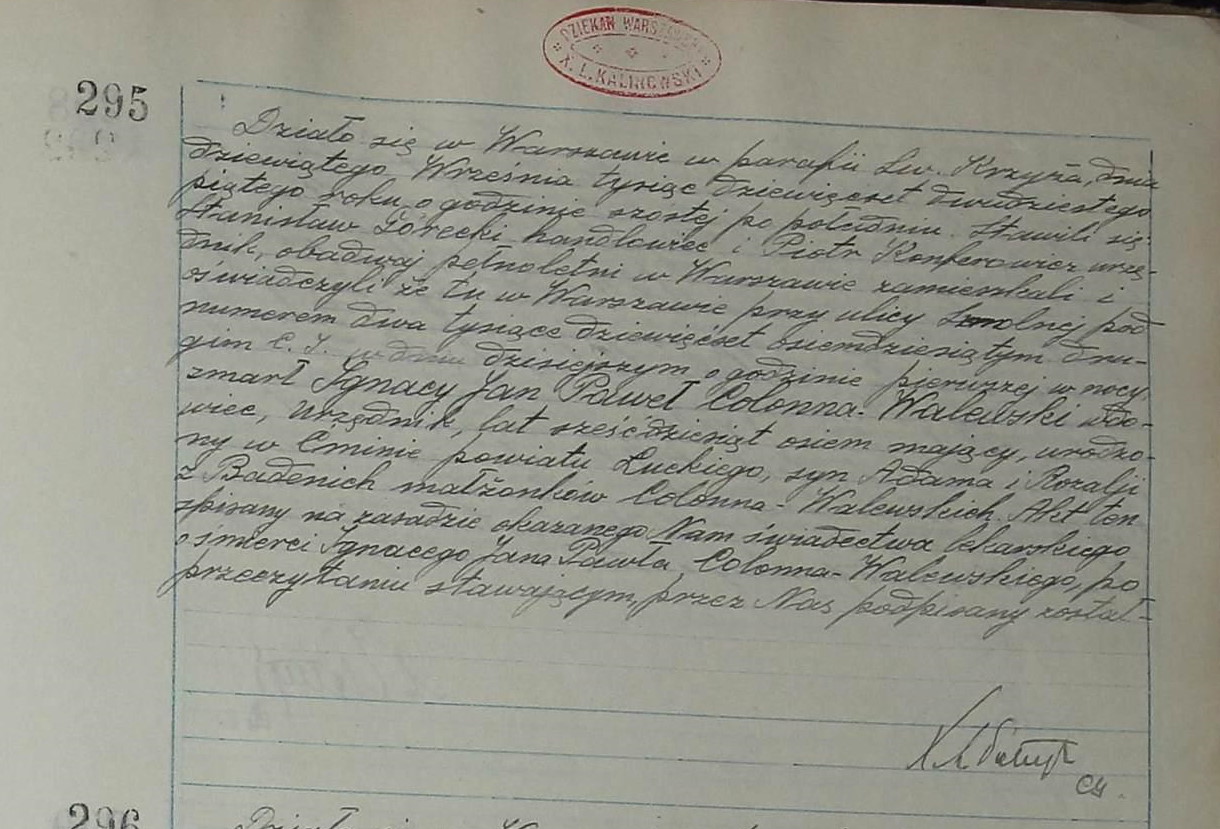 DZIEKAN WARSZAWSKI
X. L. KALINOWSKI
295
Działo się w Warszawie w parafii św. Krzyża, dnia
dziewiątego Września tysiąc dziewięćset dwudziestego
piątego roku, o godzinie szóstej po południu. Stawili się:
Stanisław Górecki handlowiec i Piotr Konferowicz urzę-
dnik, obadwaj pełnoletni w Warszawie zamieszkali i
oświadczyli że tu w Warszawie przy ulicy Smolnej pod
numerem dwa tysiące dziewięćset osiemdziesiątym dru-
gim C. J. w dniu dzisiejszym o godzinie pierwszej w nocy
zmarł Ignacy Jan Paweł Colonna-Walewski wdo-
wiec, urzędnik, lat sześćdziesiąt osiem mający, urodzo-
ny w Cminie powiatu Łuckiego, syn Adama i Rozalji
z Badenich małżonków Colonna-Walewskich. Akt ten
spisany na zasadzie okazanego Nam świadectwa lekarskiego
o śmierci Ignacego Jana Pawła Colonna-Walewskiego, po
przeczytaniu stawającym, przez Nas podpisany został-
296